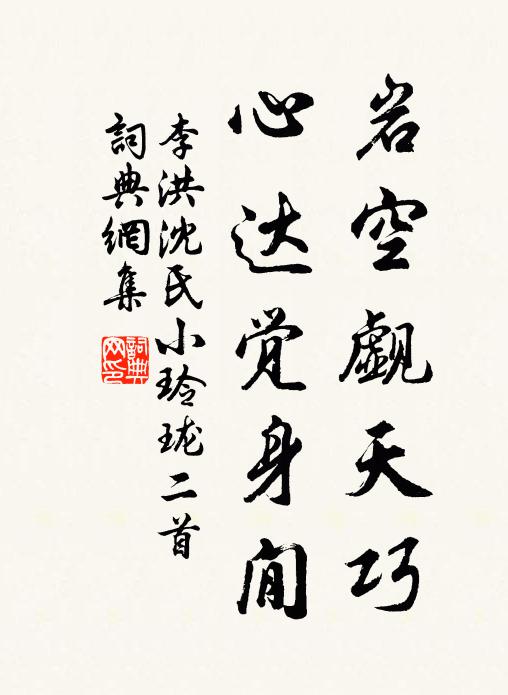 岩空觑天巧
心达觉身闲
李洪沈氏小玲珑二首
詞典網集
詞典网印